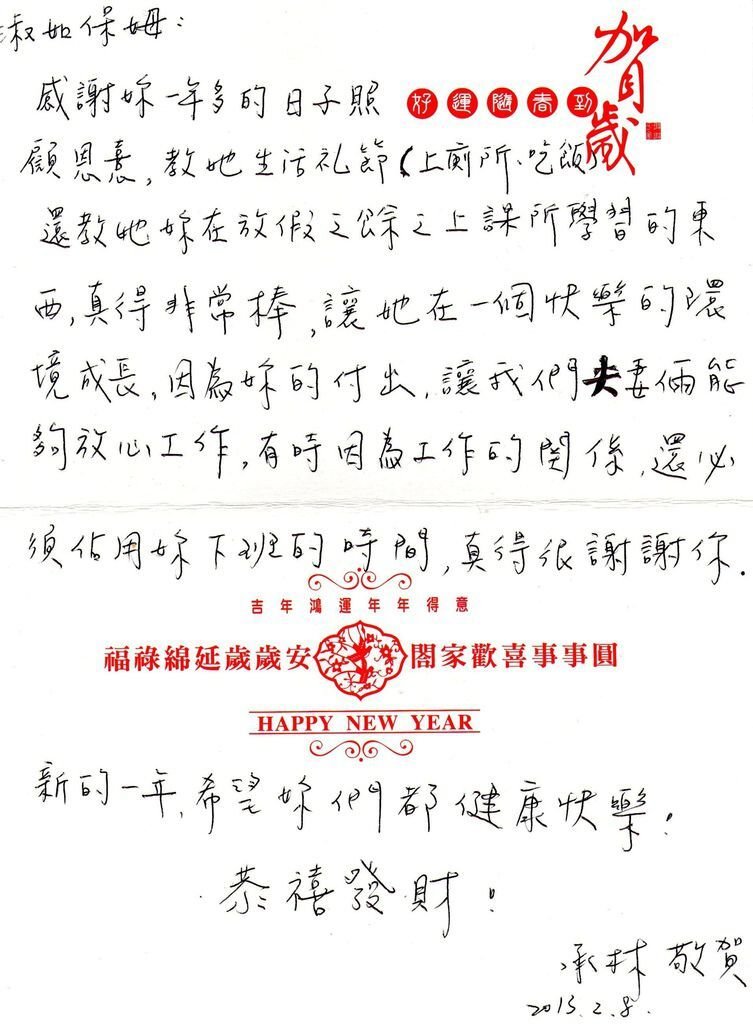 淑如保姆：
賀歲
感謝妳一年多的日子照
好運隨春到
顧恩熹，教她生活礼節（上廁所、吃飯）
還教她妳在放假之餘之上課所學習的東
西，真得非常棒，讓她在一個快樂的環
境成長，因為妳的付出，讓我們夫妻倆能
夠放心工作，有時因為工作的関係，還必
須佔用妳下班的時間，真得很謝謝你．
吉年鴻運年年得意
福祿綿延歲歲安 闔家歡喜事事圓
HAPPY NEW YEAR
新的一年，希望妳們都健康快樂！
恭禧發財！
承林 敬賀
2013.2.8.